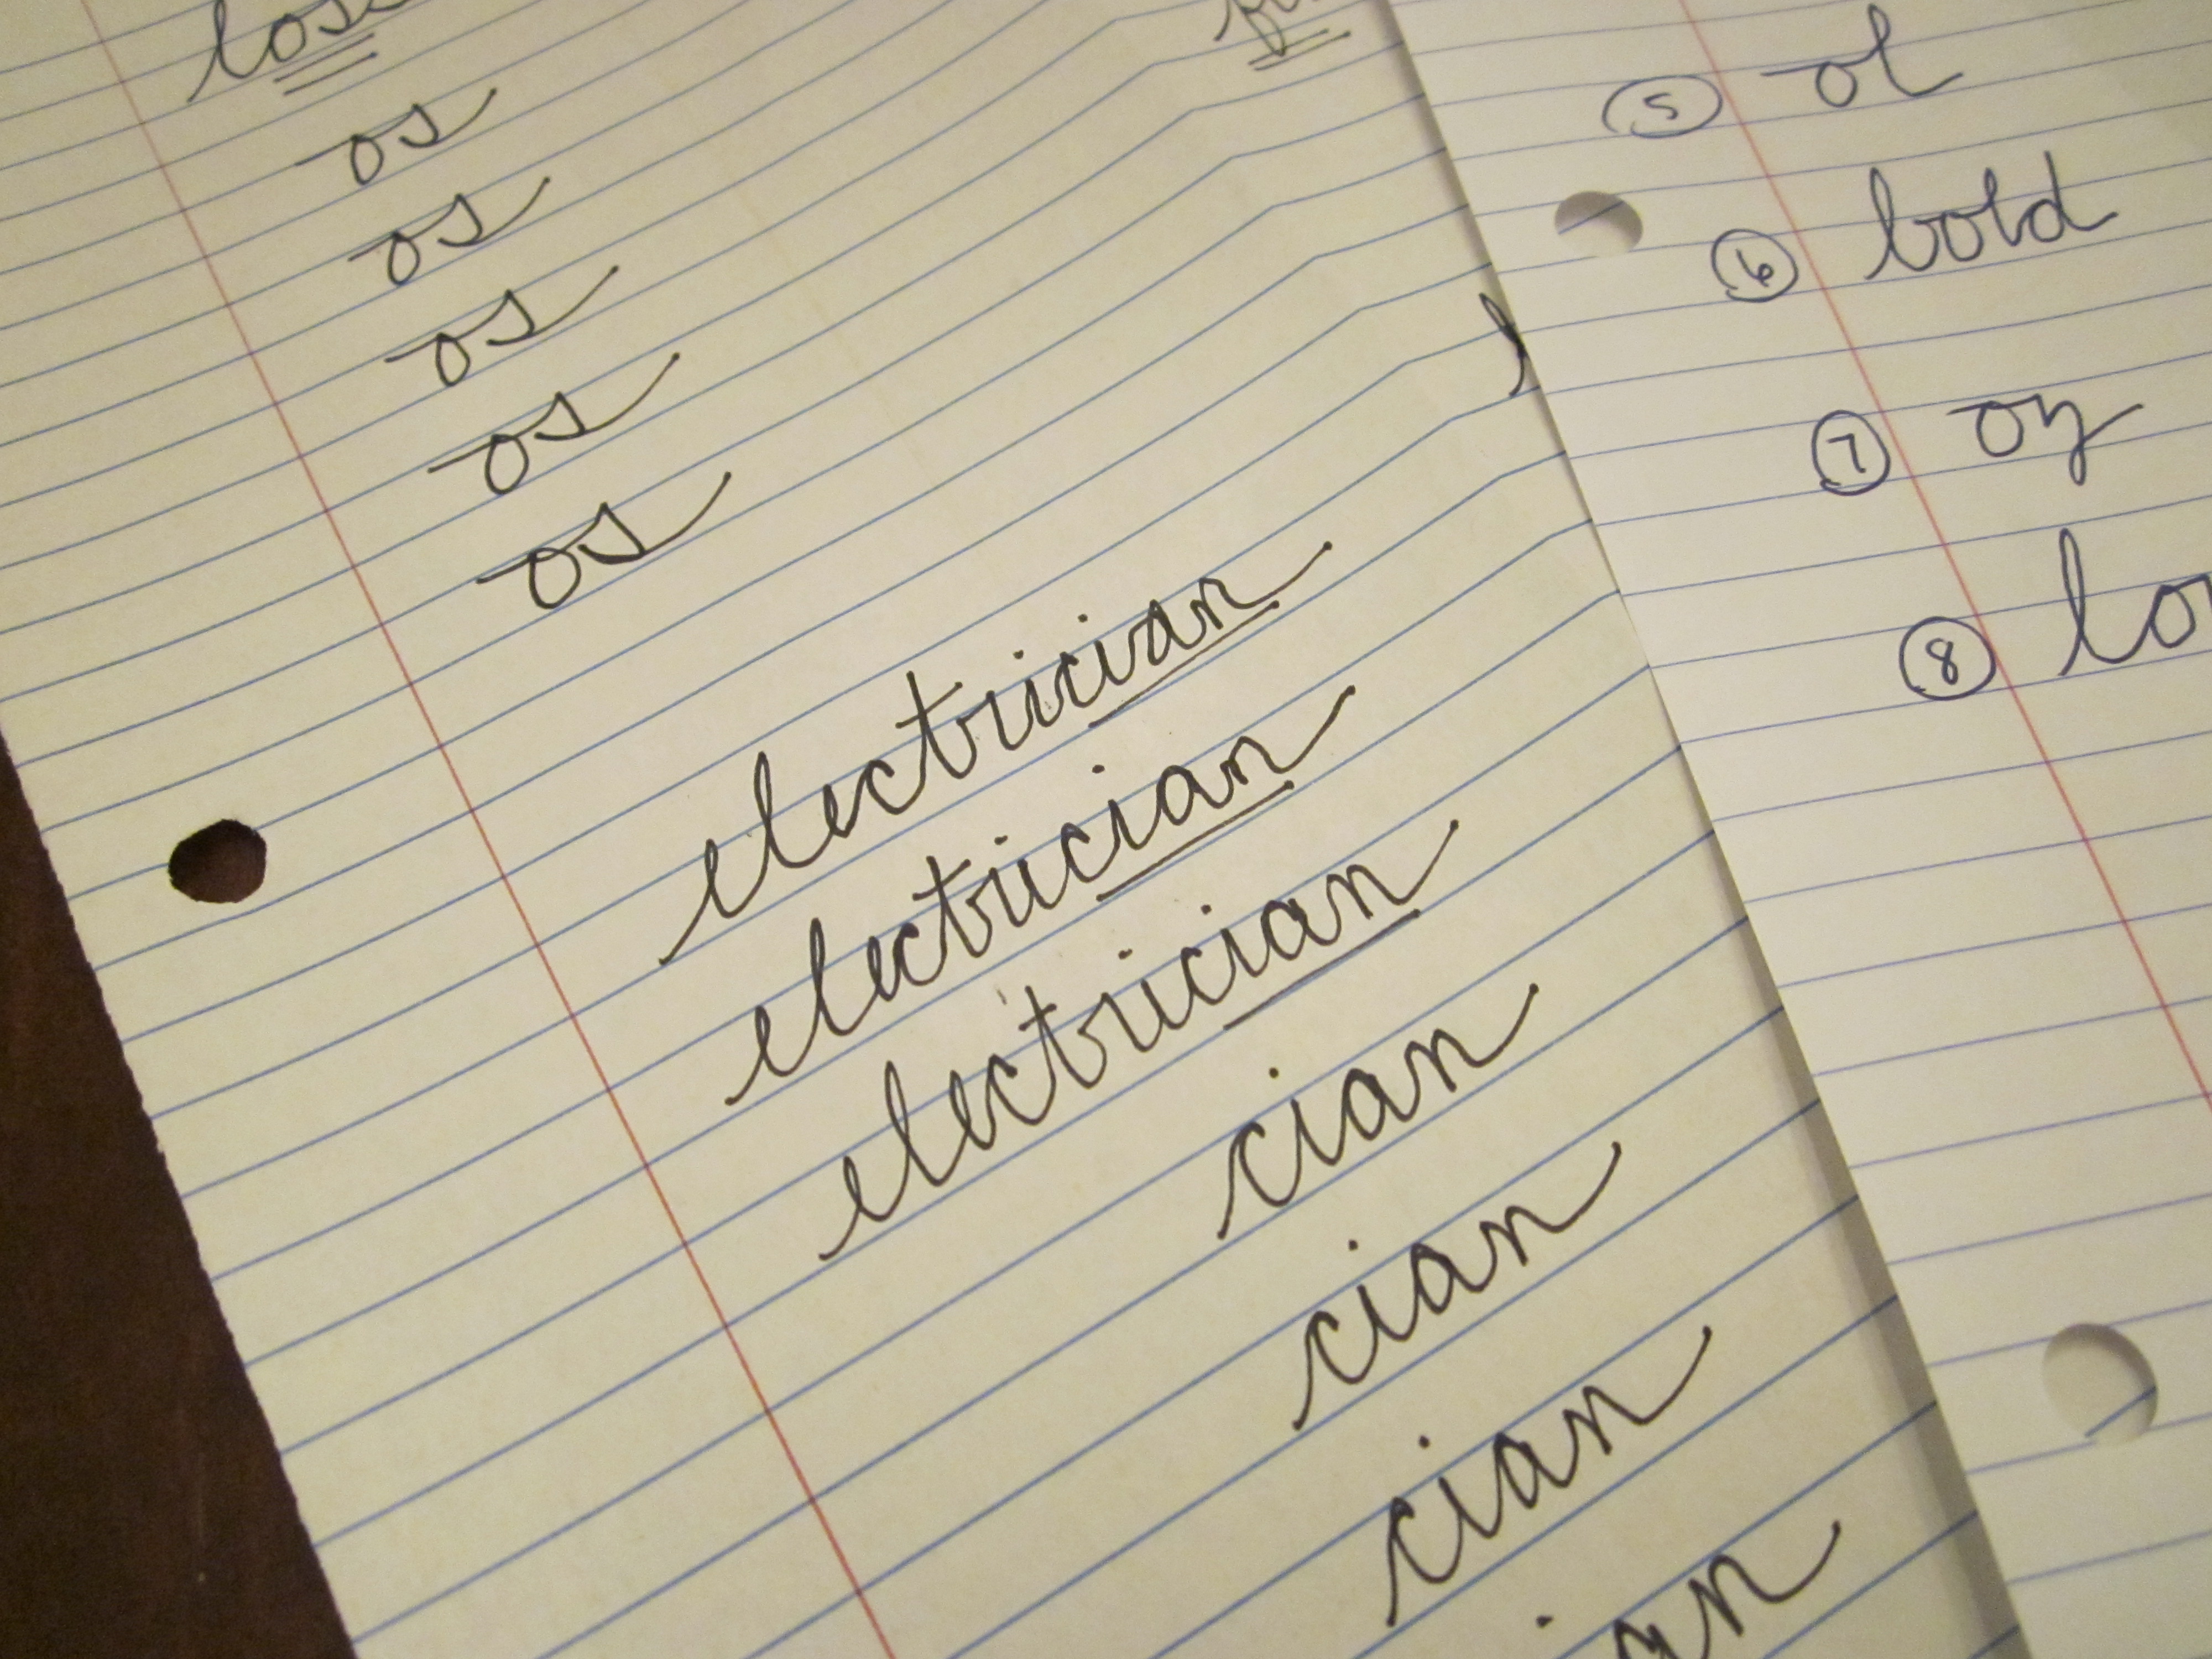 os
os
os
os
os
electrician
electrician
electrician
cian
cian
cian
5 ol
6 bold
7 oy
8